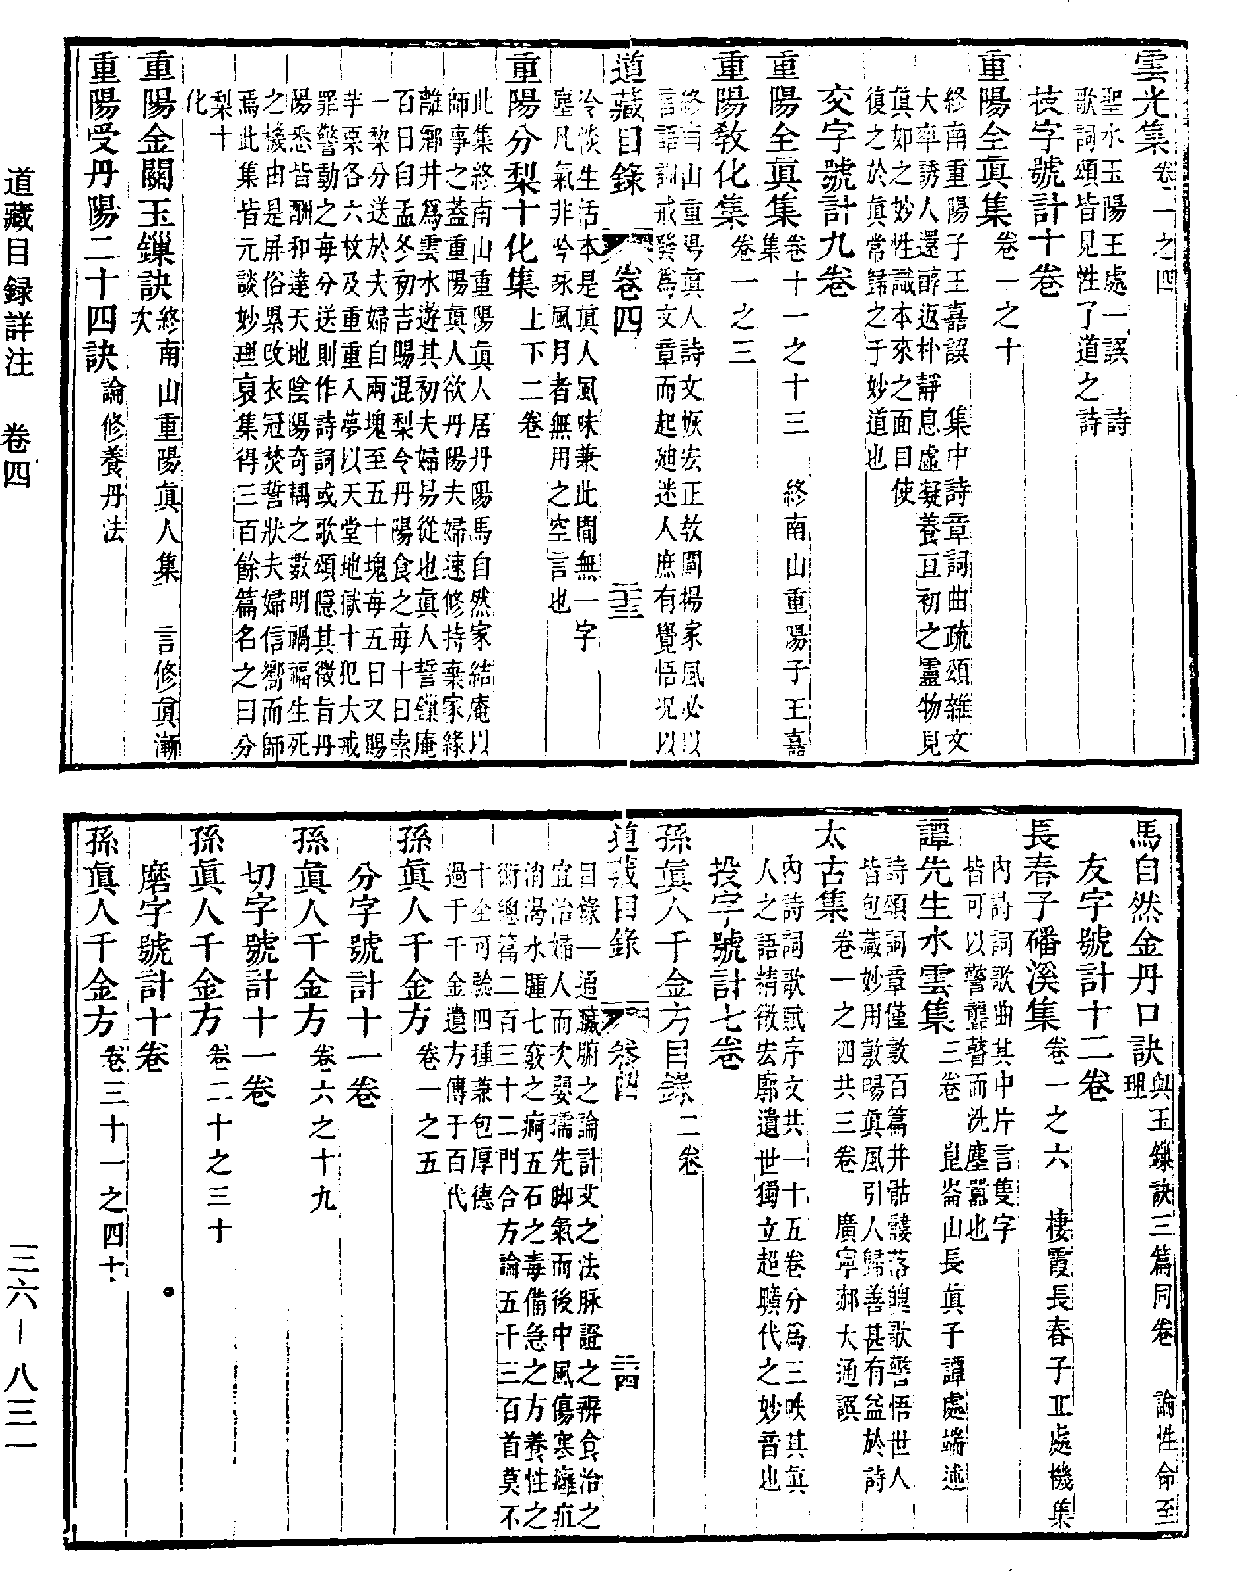 雲光集卷一之四
聖水玉陽王處一譔　詩
歌詞頌皆見性了道之詩
枝字號計十卷
重陽全眞集卷一之十
終南重陽子王嘉譔　集中詩章詞曲疏頌雜文
大率誘人還醇返朴靜息虛凝養亘初之靈物見
眞如之妙性識本來之面目使
復之於眞常歸之于妙道也
交字號計九卷
重陽全眞集卷十一之十三　終南山重陽子王嘉
集
重陽敎化集卷一之三
終南山重陽眞人詩文恢宏正敎闡揚家風必以
言語詞戒發爲文章而起廸迷人庶有覺悟況以
道藏目錄　卷四　二十三
冷淡生活本是眞人風味兼此間無一字
塵凡氣非吟琢風月者無用之空言也
重陽分梨十化集上下二卷
此集終南山重陽眞人居丹陽馬自然家結庵以
師事之蓋重陽眞人欲丹陽夫婦速修持棄家緣
離鄉井爲雲水遊其初夫婦易從也眞人誓鎖庵
百日曰孟冬初吉賜混梨令丹陽食之每十日索
一梨分送於夫婦自兩塊至五十塊每五日又賜
芋栗各六枚及重重入夢以天堂地獄十犯大戒
罪警動之每分送則作詩詞或歌頌隱其微旨丹
陽悉皆酬和達天地陰陽奇耦之數明禍福生死
之機由是屏俗累改衣冠焚誓狀夫婦信嚮而師
焉此集皆元談妙理裒集得三百餘篇名之曰分
梨十
化
重陽金關玉鏁訣終南山重陽眞人集　言修眞漸
次
重陽受丹陽二十四訣論修養丹法
馬自然金丹口訣與玉鏁訣三篇同卷　論性命至
理
友字號計十二卷
長春子磻溪集卷一之六　棲霞長春子丘處機集
內詩詞歌曲其中片言隻字
皆可以警聾瞽而洗塵囂也
譚先生水雲集三卷　崑崙山長眞子譚處端述
詩頌詞章僅數百篇并骷髏落魄歌警悟世人
皆包藏妙用敷暢眞風引人歸善甚有益於詩
太古集卷一之四共三卷　廣寧郝大通譔
內詩詞歌賦序文共一十五卷分爲三帙其眞
人之語精微宏廓遺世獨立超曠代之妙音也
投字號計七卷
孫眞人千金方目錄二卷
道藏目錄　卷四　二十四
目錄一通臟腑之論計艾之法脉證之辨食治之
宜治婦人而次嬰孺先脚氣而後中風傷寒癰疽
消渴水腫七竅之痾五石之毒備急之方養性之
術總篇二百三十二門合方論五千三百首莫不
十全可驗四種兼包厚德
過于千金遺方傳于百代
孫眞人千金方卷一之五
分字號計十一卷
孫眞人千金方卷六之十九
切字號計十一卷
孫眞人千金方卷二十之三十
磨字號計十卷
孫眞人千金方卷三十一之四十
道藏目錄詳注　卷四
三六—八三一